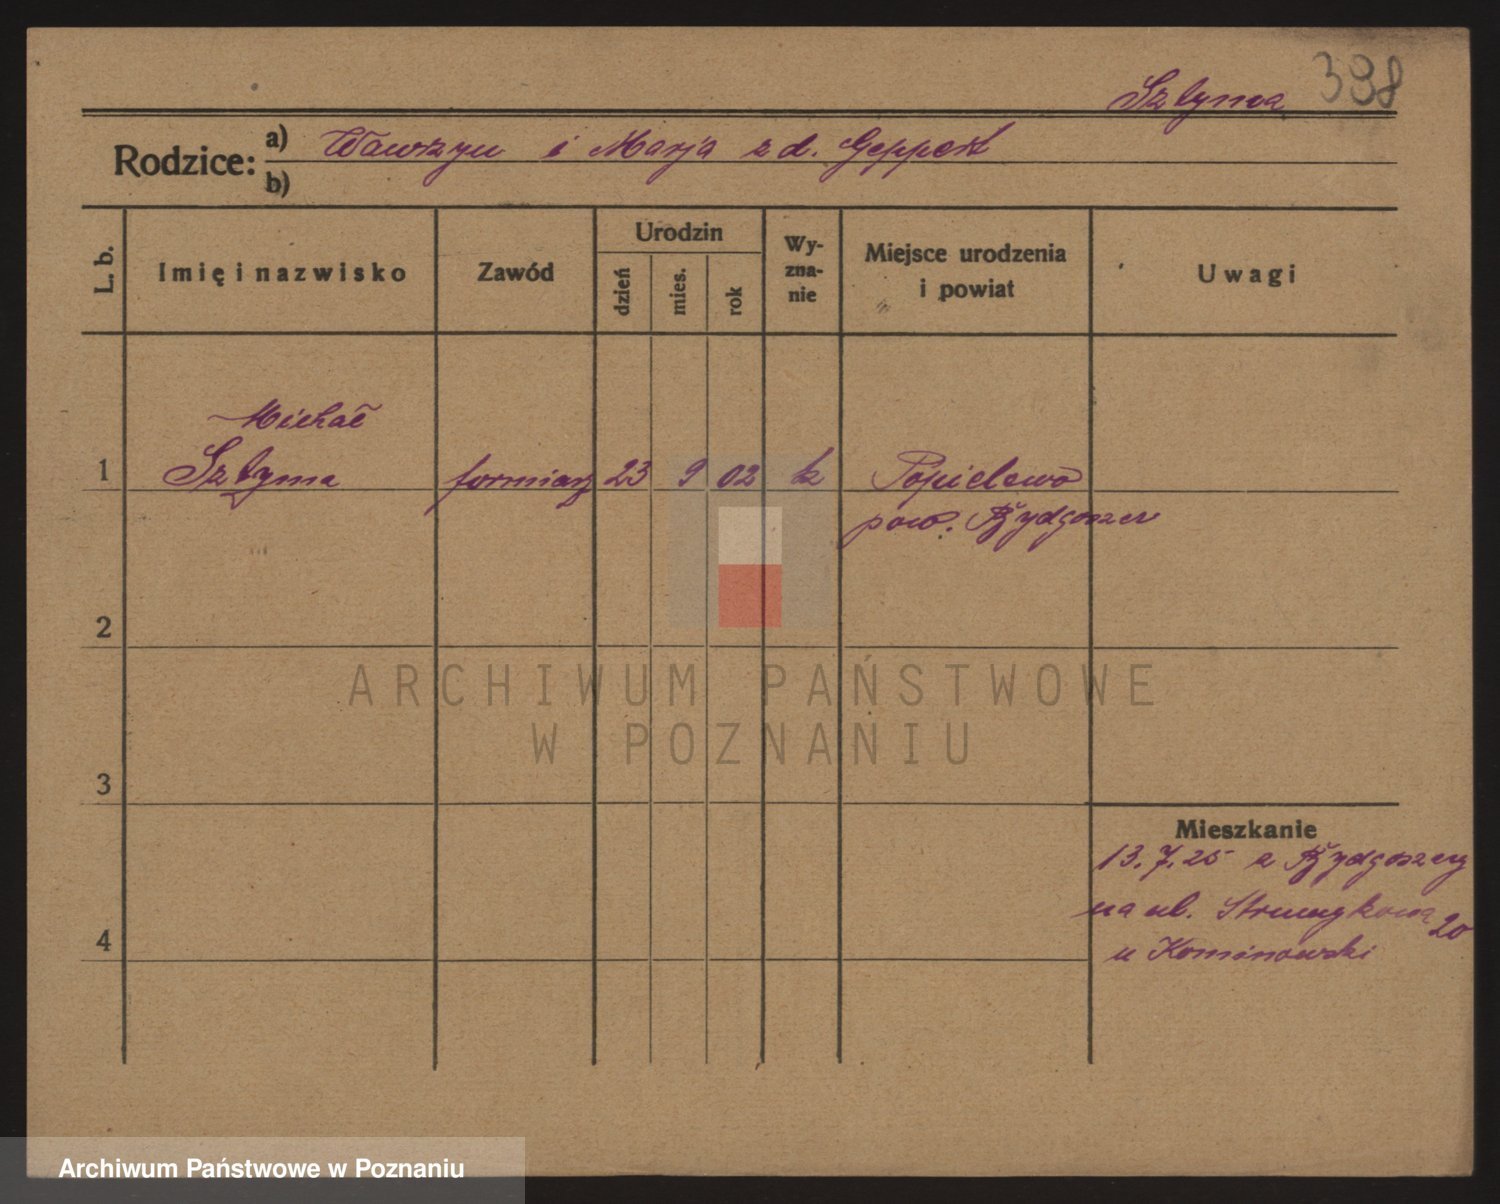 Sztyma 398
Rodzice: a) Wawrzyn i Marja z d. Geppert
b)
L. b. Imię i nazwisko Zawód Urodzin dzień mies. rok Wy-zna-nie Miejsce urodzenia i powiat Uwagi
Michał
1 Sztyma formiarz 23 9 02 k Popielewo
pow. Bydgoszcz
2
ARCHIWUM PAŃSTWOWE
W POZNANIU
3
Mieszkanie
13.7.25 z Bydgoszczy
na ul. Strumykowa 20
4
u Kominowski
Archiwum Państwowe w Poznaniu